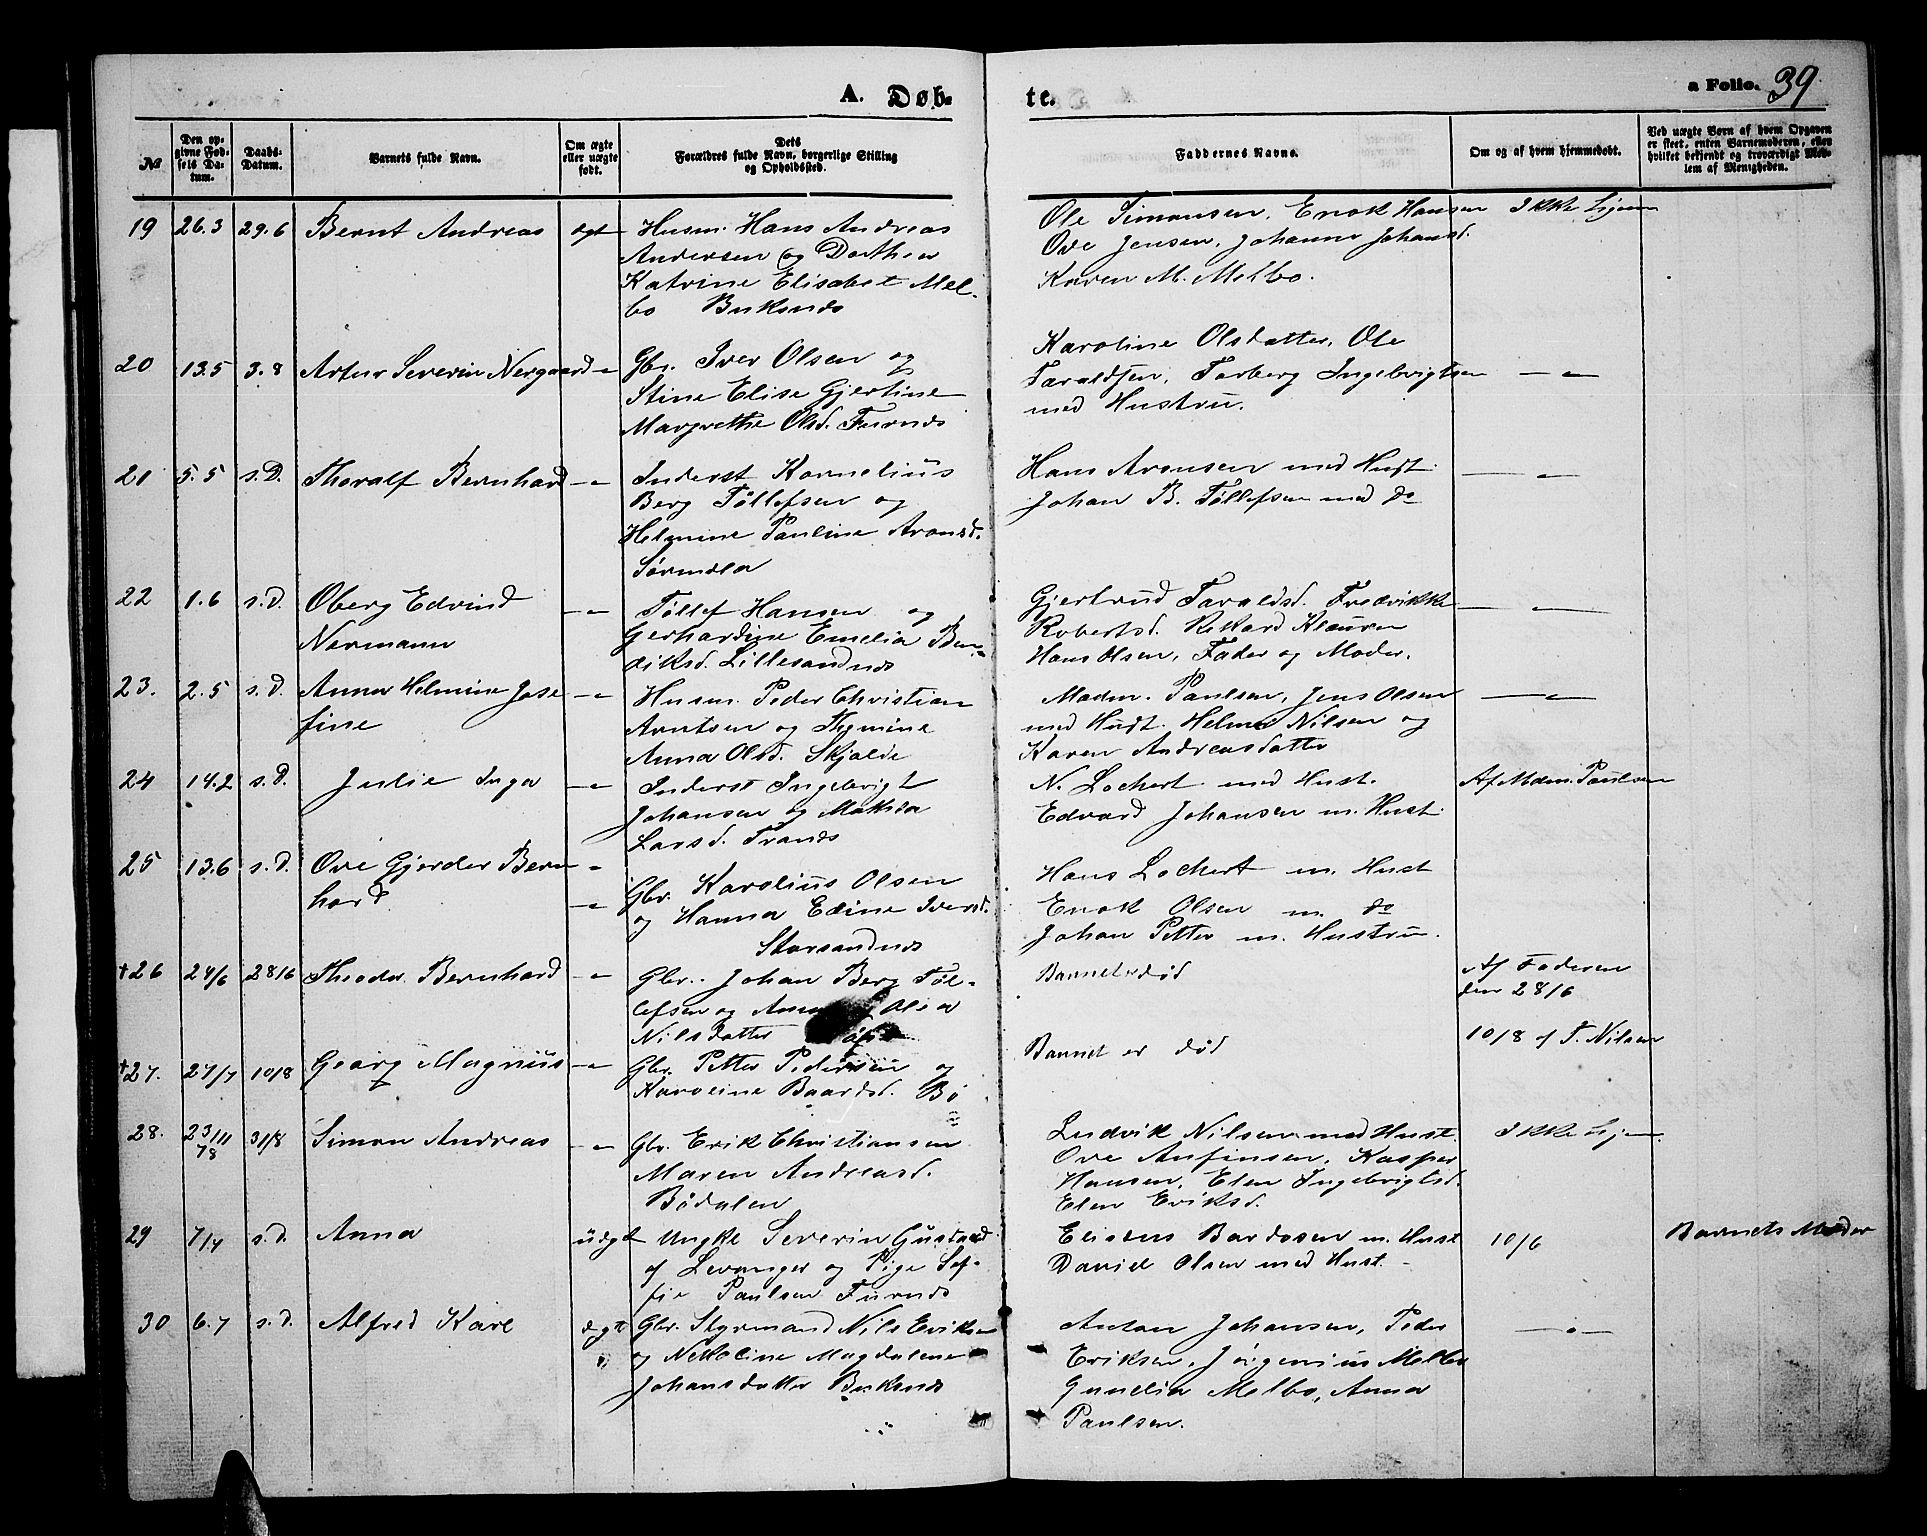 A. Døb-
te.
a Folio. 39
No
Den op-
givne Fød-
sels Da-
tum.
Daabs-
Datum.
Barnets fulde Navn.
Om ægte
eller uægte
født.
Dets
Forældres fulde Navn, borgerlige Stilling
og Opholdssted.
Faddernes Navne.
Om og af hvem hjemmedøbt.
Ved uægte Børn af hvem Opgaven
er skeet, enten Barnemoderen, eller
hvilket bekjendt og troværdigt Med-
lem af Menigheden.
19 26.3 29.6 Bernt Andreas ægt Husm. Hans Andreas
Andersen og Dorthea
Katrine Elisabet Mel-
bo Buksnæs
Ole Simonsen, Enok Hansen
Ove Jensen, Johanna Johansd.
Karen M. Melbo.
Ikke hjem
20 13.5 3.8 Artur Severin Nergaard -"- Gbr. Iver Olsen og
Stine Elise Gjertine
Margrethe Olsd. Furnæs
Karoline Olsdatter, Ole
Taraldsen, Torberg Ingebrigtsen
med Hustru.
-"-
21 5.5 s.D. Thoralf Bernhard -"- Inderst Kornelius
Berg Tøllefsen og
Helmine Pauline Aronsd.
Hans Aronsen med Hust.
Johan B. Tøllefsen med do
-"-
22 1.6 s.d. Oberg Edvind
Normann
-"- Tøllef Hansen og
Gerhardine Emelia Ben-
diksd. Lillesandnes
Gjertrud Taraldsd. Fredrikke
Robertsd. Rikard Klausen
Hans Olsen, Fader og Moder.
-"-
23. 2.5 s.d. Anna Helmine Jose
fine
-"- Husm. Peder Christian
Arntsen og
Anna Olsd. Skjolde
Madm. Paulsen, Jens Olsen
med Hust. Helmer Nilsen og
Karen Andreasdatter
-"-
24 14.2 s.d. Julie Inga -"- Inderst Ingebrigt
Johansen og Mathilda
Larsd. Frands
N. Lochert med Hust.
Edvard Johansen m. Hust.
Af Madm. Paulsen
25 13.6 s.d. Ove Gjerder Bern
hard
-"- Gbr. Karolius Olsen
og Hanna Edine Iversd.
Storsandnes
Hans Lochert m. Hust
Enok Olsen m. do
Johan Petter m. Hustru.
†26 24/6 28/6 Theodor Bernhard -"- Gbr. Johan Berg Tøl-
lefsen og Anna Olea
Nilsdatter
Barnet er død
Af Faderen
den 28/6
†27. 27/7 10/8 Georg Magnus -"- Gbr. Petter Pedersen og
Karoline Baardsd. Bø
Barnet er død
10/8 af T. Nilsen
28. 23/11 78 31/8 Simon Andreas -"- Gbr. Erik Christiansen
Maren Andreasd.
Bødalen
Ludvik Nilsen med Hust.
Ove Anfinsen, Kasper
Hansen, Elen Ingebrigtsd.
Elen Eriksd.
Ikke hjem.
29 7/4 s.d. Anna uægt Ungk. Severin Gustavd
af Levanger og Pige Sof-
fie Paulsen Furnæs
Elisæus Bardosen m. Hust
David Olsen med Hust.
10/6
Barnets Moder
30 6.7 s.d. Alfred Karl ægt Gbr. Styrmand Nils Eriksen
og Nekoline Magdalene
Johansdatter Buksnæs
Anton Johansen, Peder
Eriksen, Jørgenius Melbo
Gunelia Melbo, Anna
Paulsen.
-"-